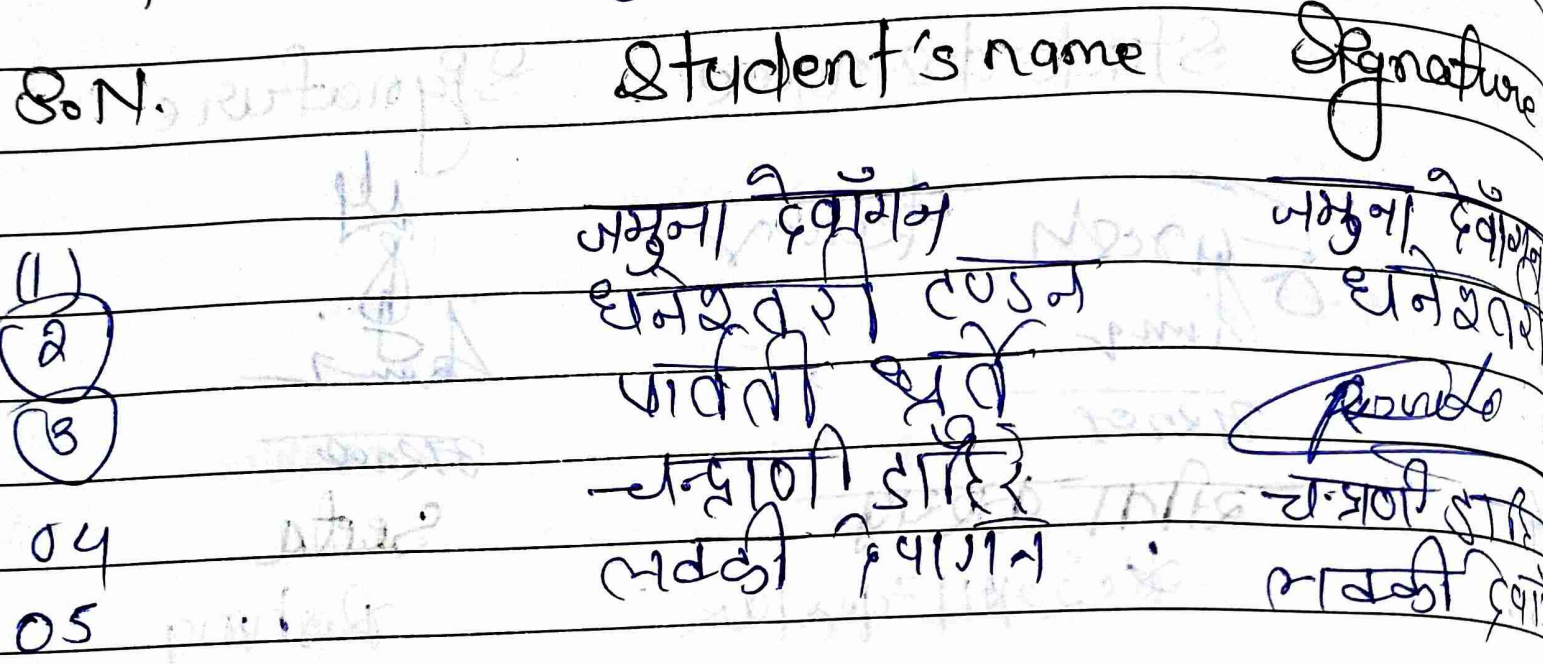 S.N. Student's name Signature
(1) जमुना देवाँगन जमुना देवाँगन
2 धनेश्वरी टण्डन धनेश्वरी
3 पार्वती धुर्वे
04 चन्द्राणी डाहिरे चन्द्राणी डाहि
05 लक्की देवागन लक्की देवा